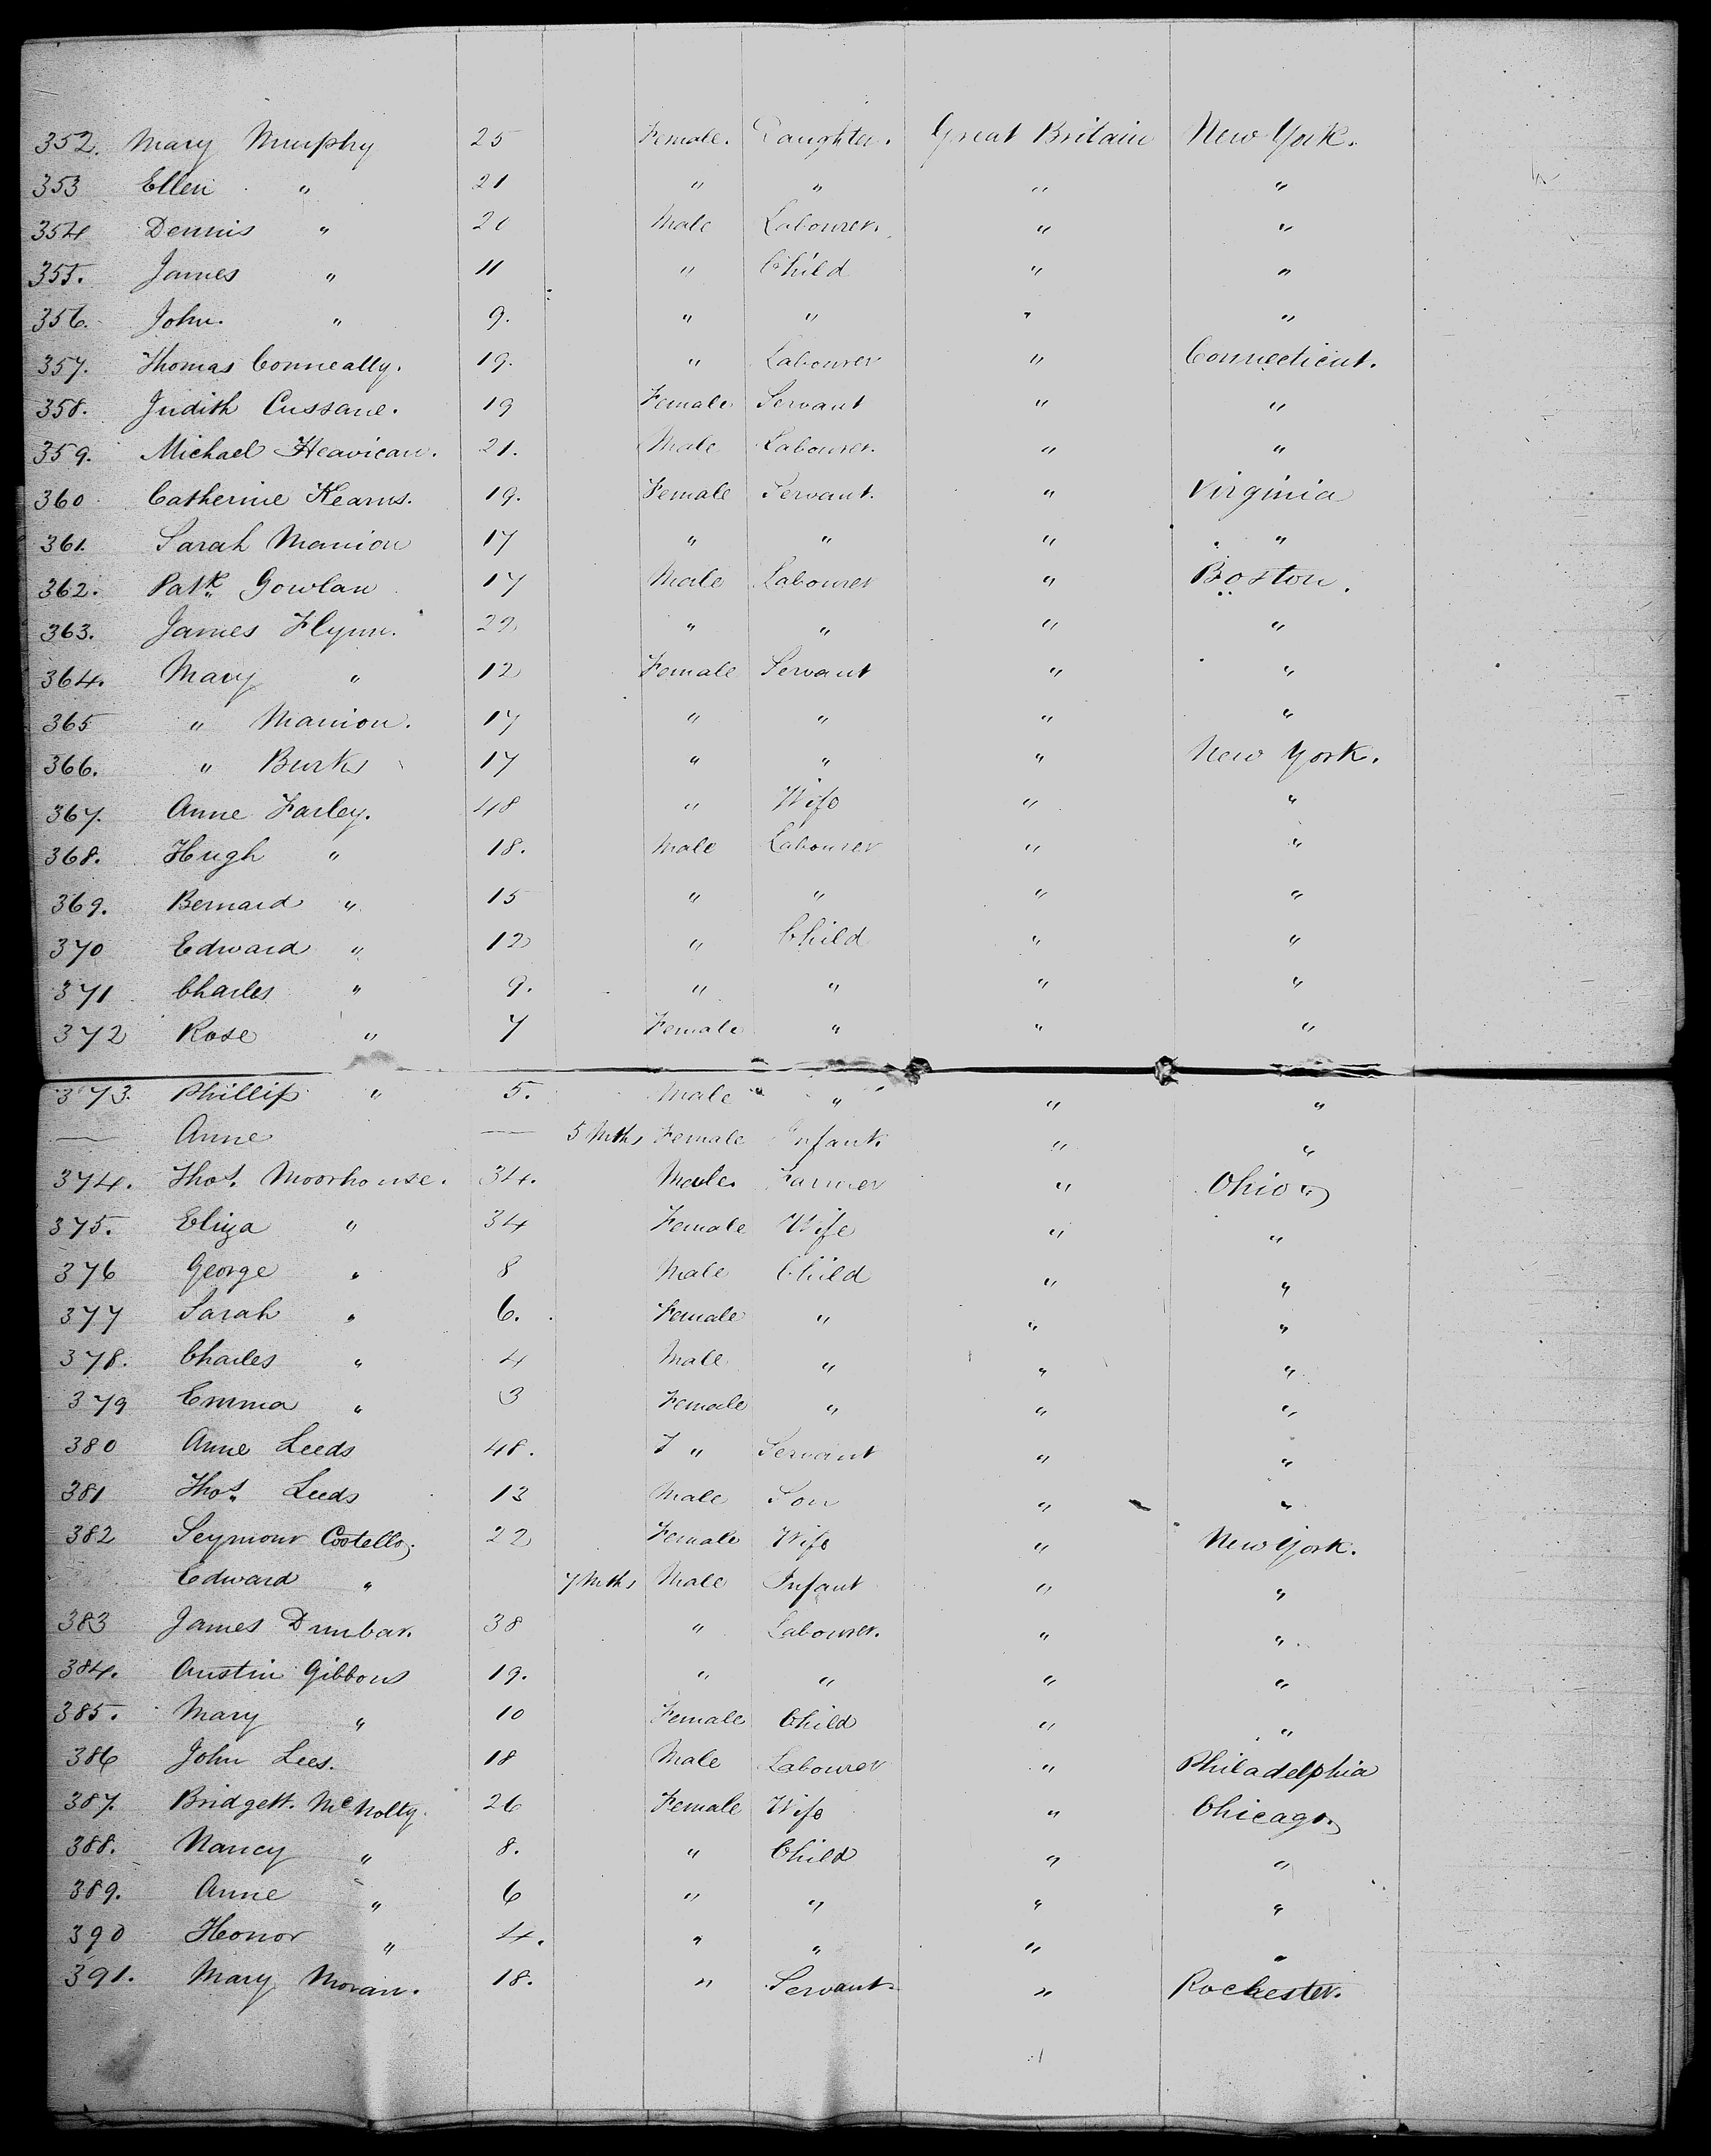 352. Mary Murphy 25 Female. Daughter. Great Britain New York.
353 Ellen " 21 " " " "
354 Dennis " 20 Male Labourer. " "
355. James " 11 " Child " "
356. John. " 9. " " " "
357. Thomas Conneally. 19. " Labourer " Connecticut.
358. Judith Cussane. 19 Female Servant " "
359. Michael Heavican. 21. Male Labourer. " "
360 Catherine Kearns. 19. Female Servant. " Virginia
361. Sarah Manion 17 " " " "
362. Patk Gowlan 17 Male Labourer " Boston.
363. James Flynn. 22 " " " "
364. Mary " 12 Female Servant " "
365 " Manion. 17 " " " "
366. " Burke 17 " " " New York.
367. Anne Farley. 48 " Wife " "
368. Hugh " 18. Male Labourer " "
369. Bernard " 15 " " " "
370 Edward " 12 " Child " "
371 Charles " 9. " " " "
372 Rose " 7 Female " " "
373. Phillip " 5. Male " " "
— Anne — 5 Mths Female Infant. " "
374. Thos. Moorhouse. 34. Male. Farmer " Ohio "
375. Eliza " 34 Female Wife " "
376 George " 8 Male Child " "
377 Sarah " 6. Female " " "
378. Charles " 4 Male " " "
379 Emma " 3 Female " " "
380 Anne Leeds 48. F " Servant " "
381 Thos. Leeds 13 Male Son " "
382 Seymour Costello. 22 Female Wife " New York.
Edward " 7 Mths Male Infant " "
383 James Dunbar. 38 " Labourer. " "
384. Austin Gibbons 19. " " " "
385. Mary " 10 Female Child " "
386 John Lees. 18 Male Labourer " Philadelphia
387. Bridgett. McNolty. 26 Female Wife " Chicago.
388. Nancy " 8. " Child " "
389. Anne " 6 " " " "
390 Honor " 4. " " " "
391. Mary Moran. 18. " Servant. " Rochester.